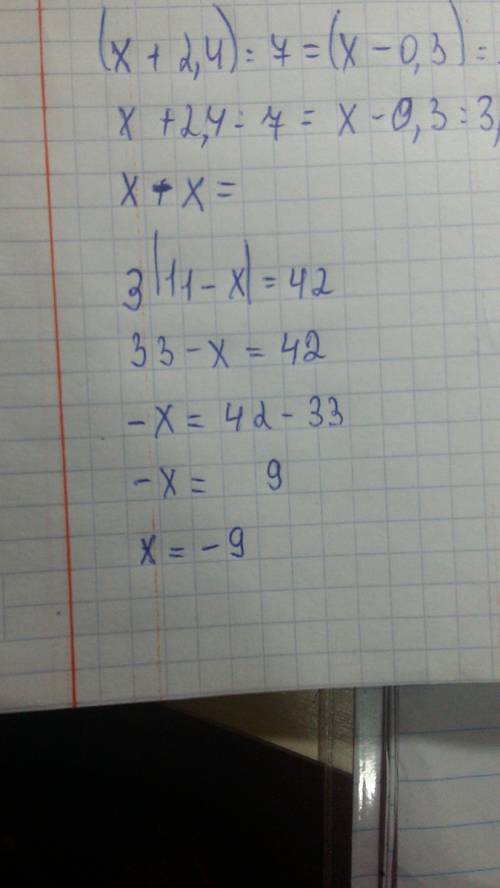 (x + 2,4) : 7 = (x - 0,3) :
x + 2,4 : 7 = x - 0,3 : 3,
x + x =
3|11 - x| = 42
33 - x = 42
- x = 42 - 33
- x = 9
x = - 9